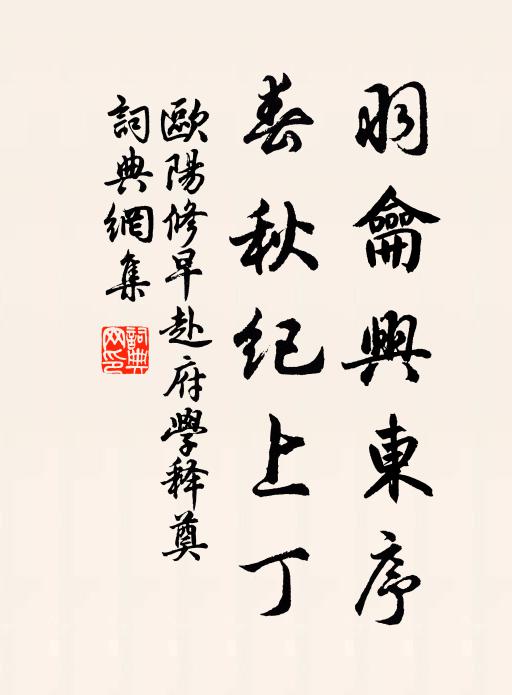 羽龠興東序
春秋紀上丁
歐陽修早赴府學释奠
詞典網集
詞典網印